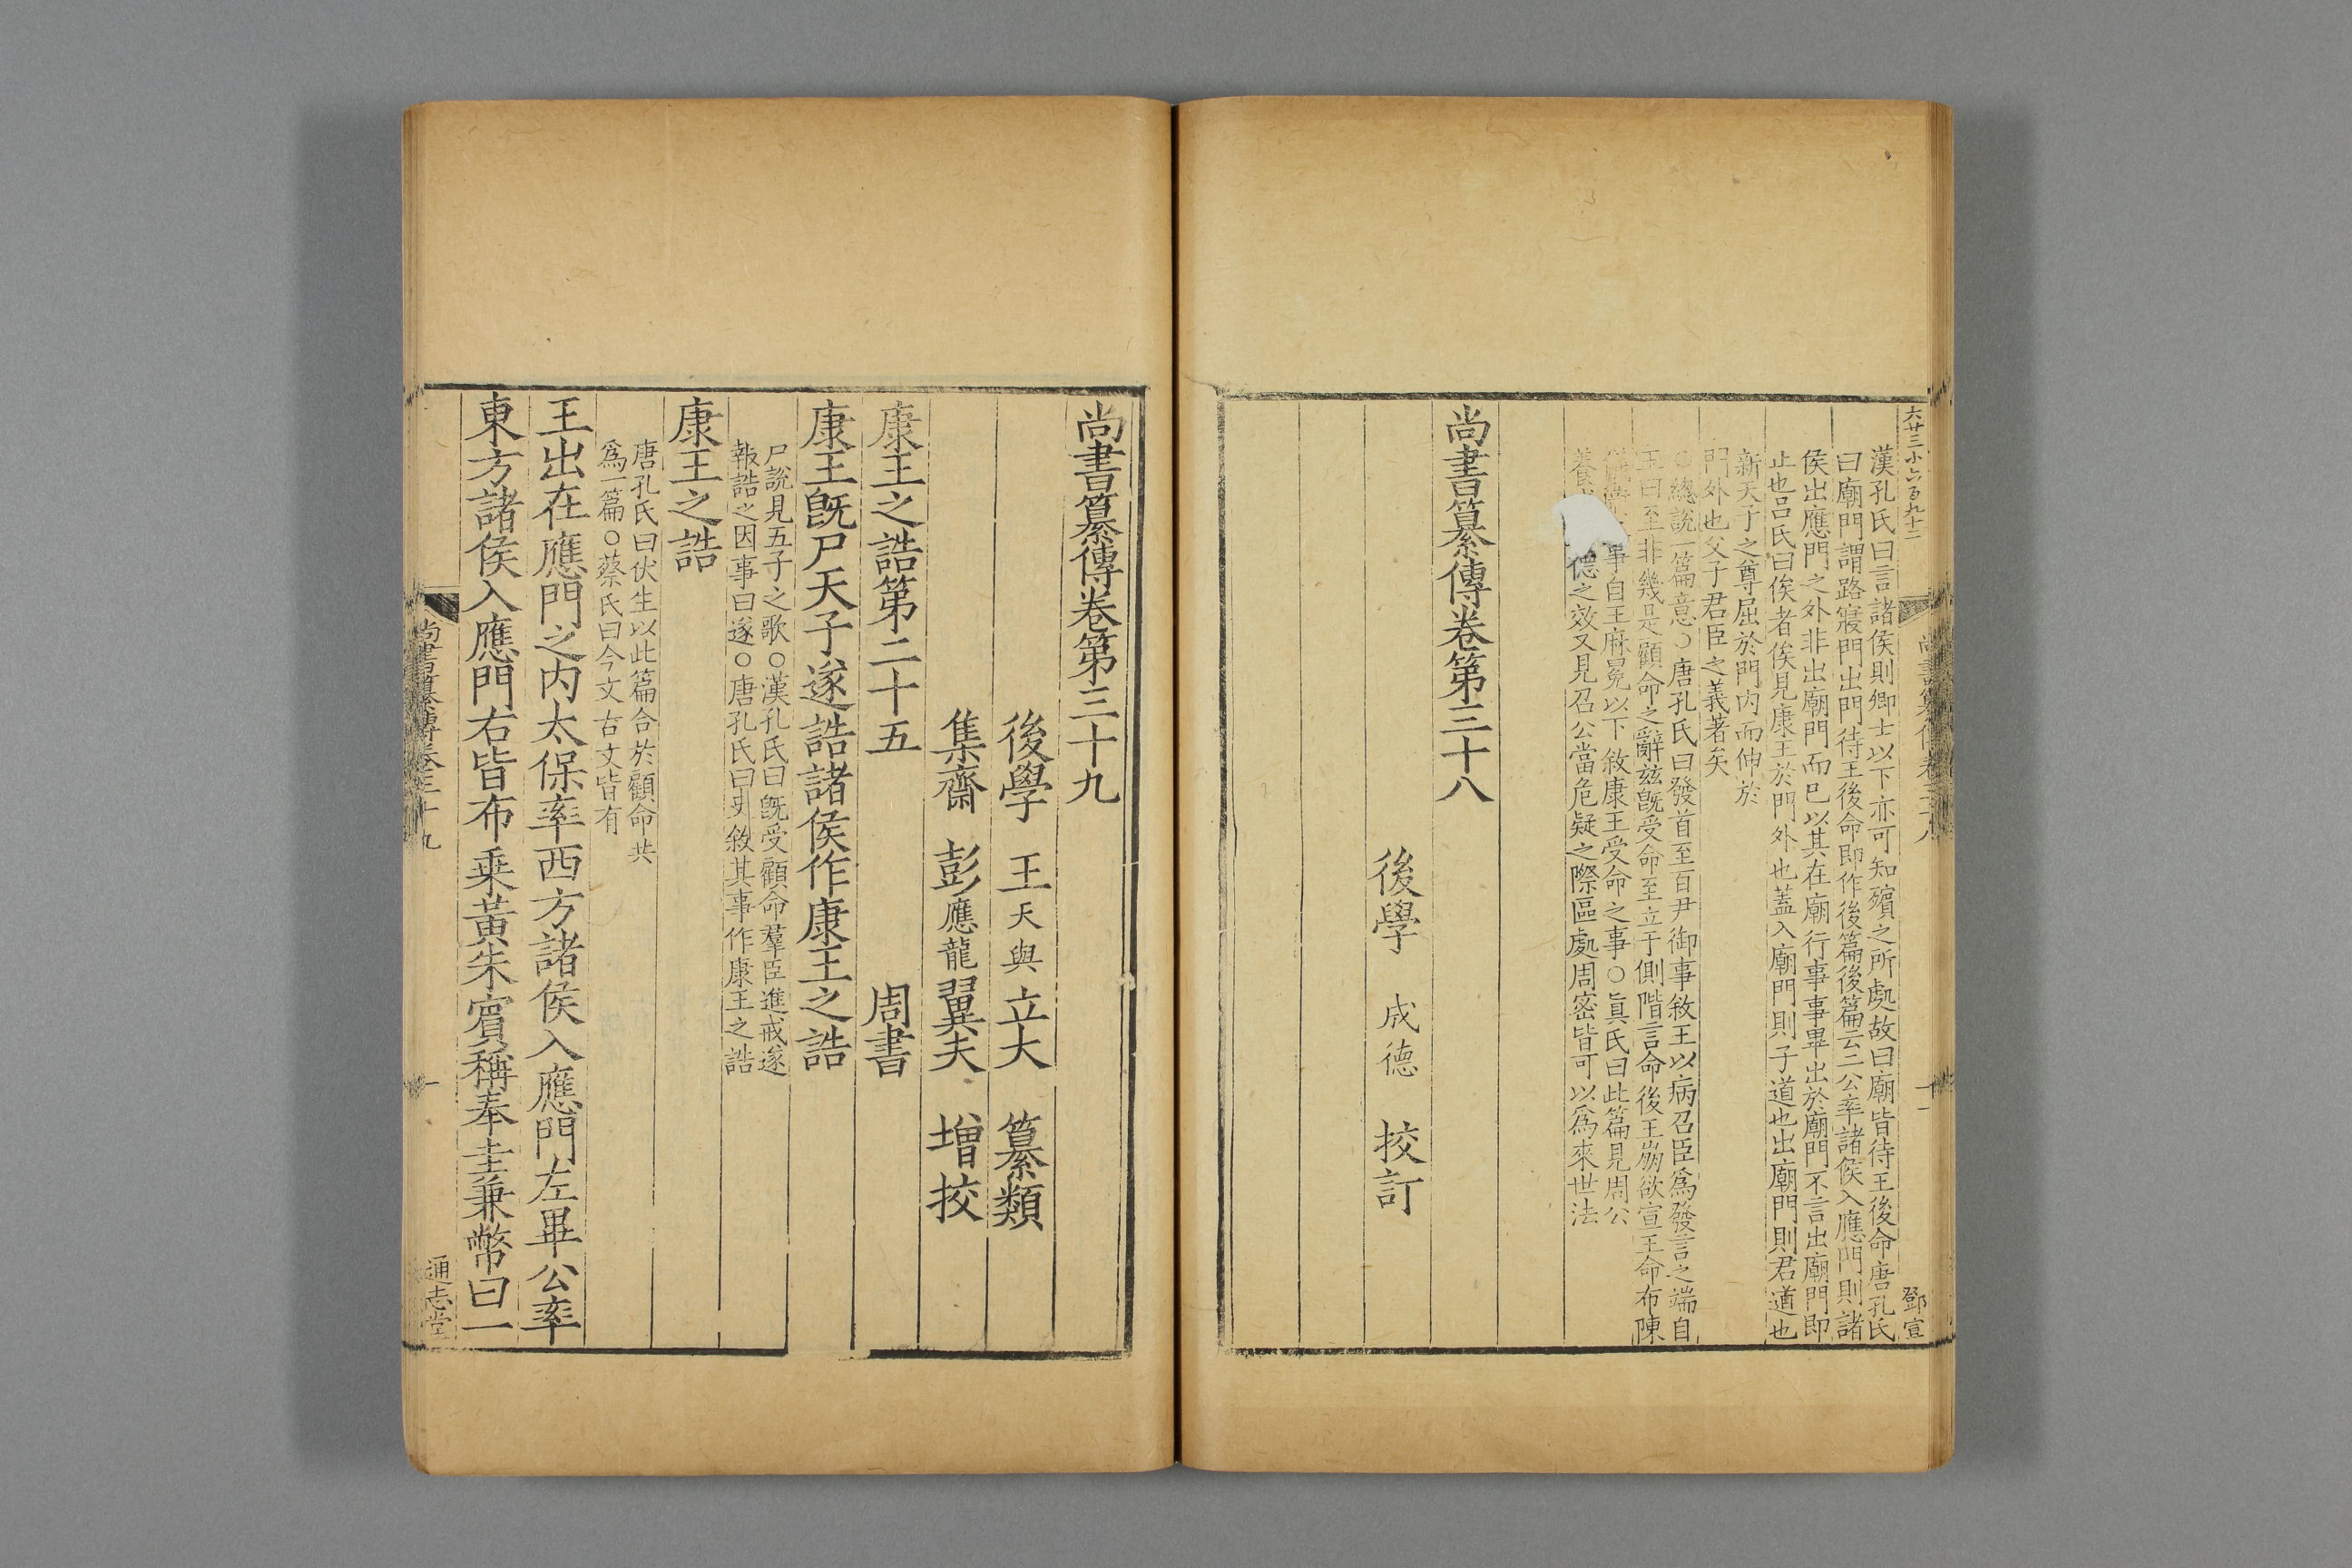 六廿三小六百九十二
鄧宣
漢孔氏曰言諸侯則卿士以下亦可知殯之所處故曰廟皆待王後命唐孔氏
曰廟門謂路寢門出門待王後命即作後篇後篇云二公率諸侯入應門則諸
侯出應門之外非出廟門而已以其在廟行事事畢出於廟門不言出廟門即
止也呂氏曰俟者俟見康王於門外也蓋入廟門則子道也出廟門則君道也
新天子之尊屈於門內而伸於
門外也父子君臣之義著矣
○總說一篇意○唐孔氏曰發首至百尹御事敘王以病召臣為發言之端自
王曰至非幾是顧命之辭兹旣受命至立于側階言命後王崩欲宣王命布陳
事自王麻冕以下敘康王受命之事○真氏曰此篇見周公
養德之效又見召公當危疑之際區處周密皆可以為來世法
尚書纂傳卷第三十八
後學 成德 挍訂
尚書纂傳卷第三十九
後學 王天與立大 纂類
集齋 彭應龍翼夫 增挍
康王之誥第二十五 周書
康王旣尸天子遂誥諸侯作康王之誥
尸說見五子之歌○漢孔氏曰旣受顧命羣臣進戒遂
報誥之因事曰遂○唐孔氏曰史敘其事作康王之誥
康王之誥
唐孔氏曰伏生以此篇合於顧命共
為一篇○蔡氏曰今文古文皆有
王出在應門之內太保率西方諸侯入應門左畢公率
東方諸侯入應門右皆布乘黃朱賓稱奉圭兼幣曰一
尚書纂傳卷三十九
一
通志堂